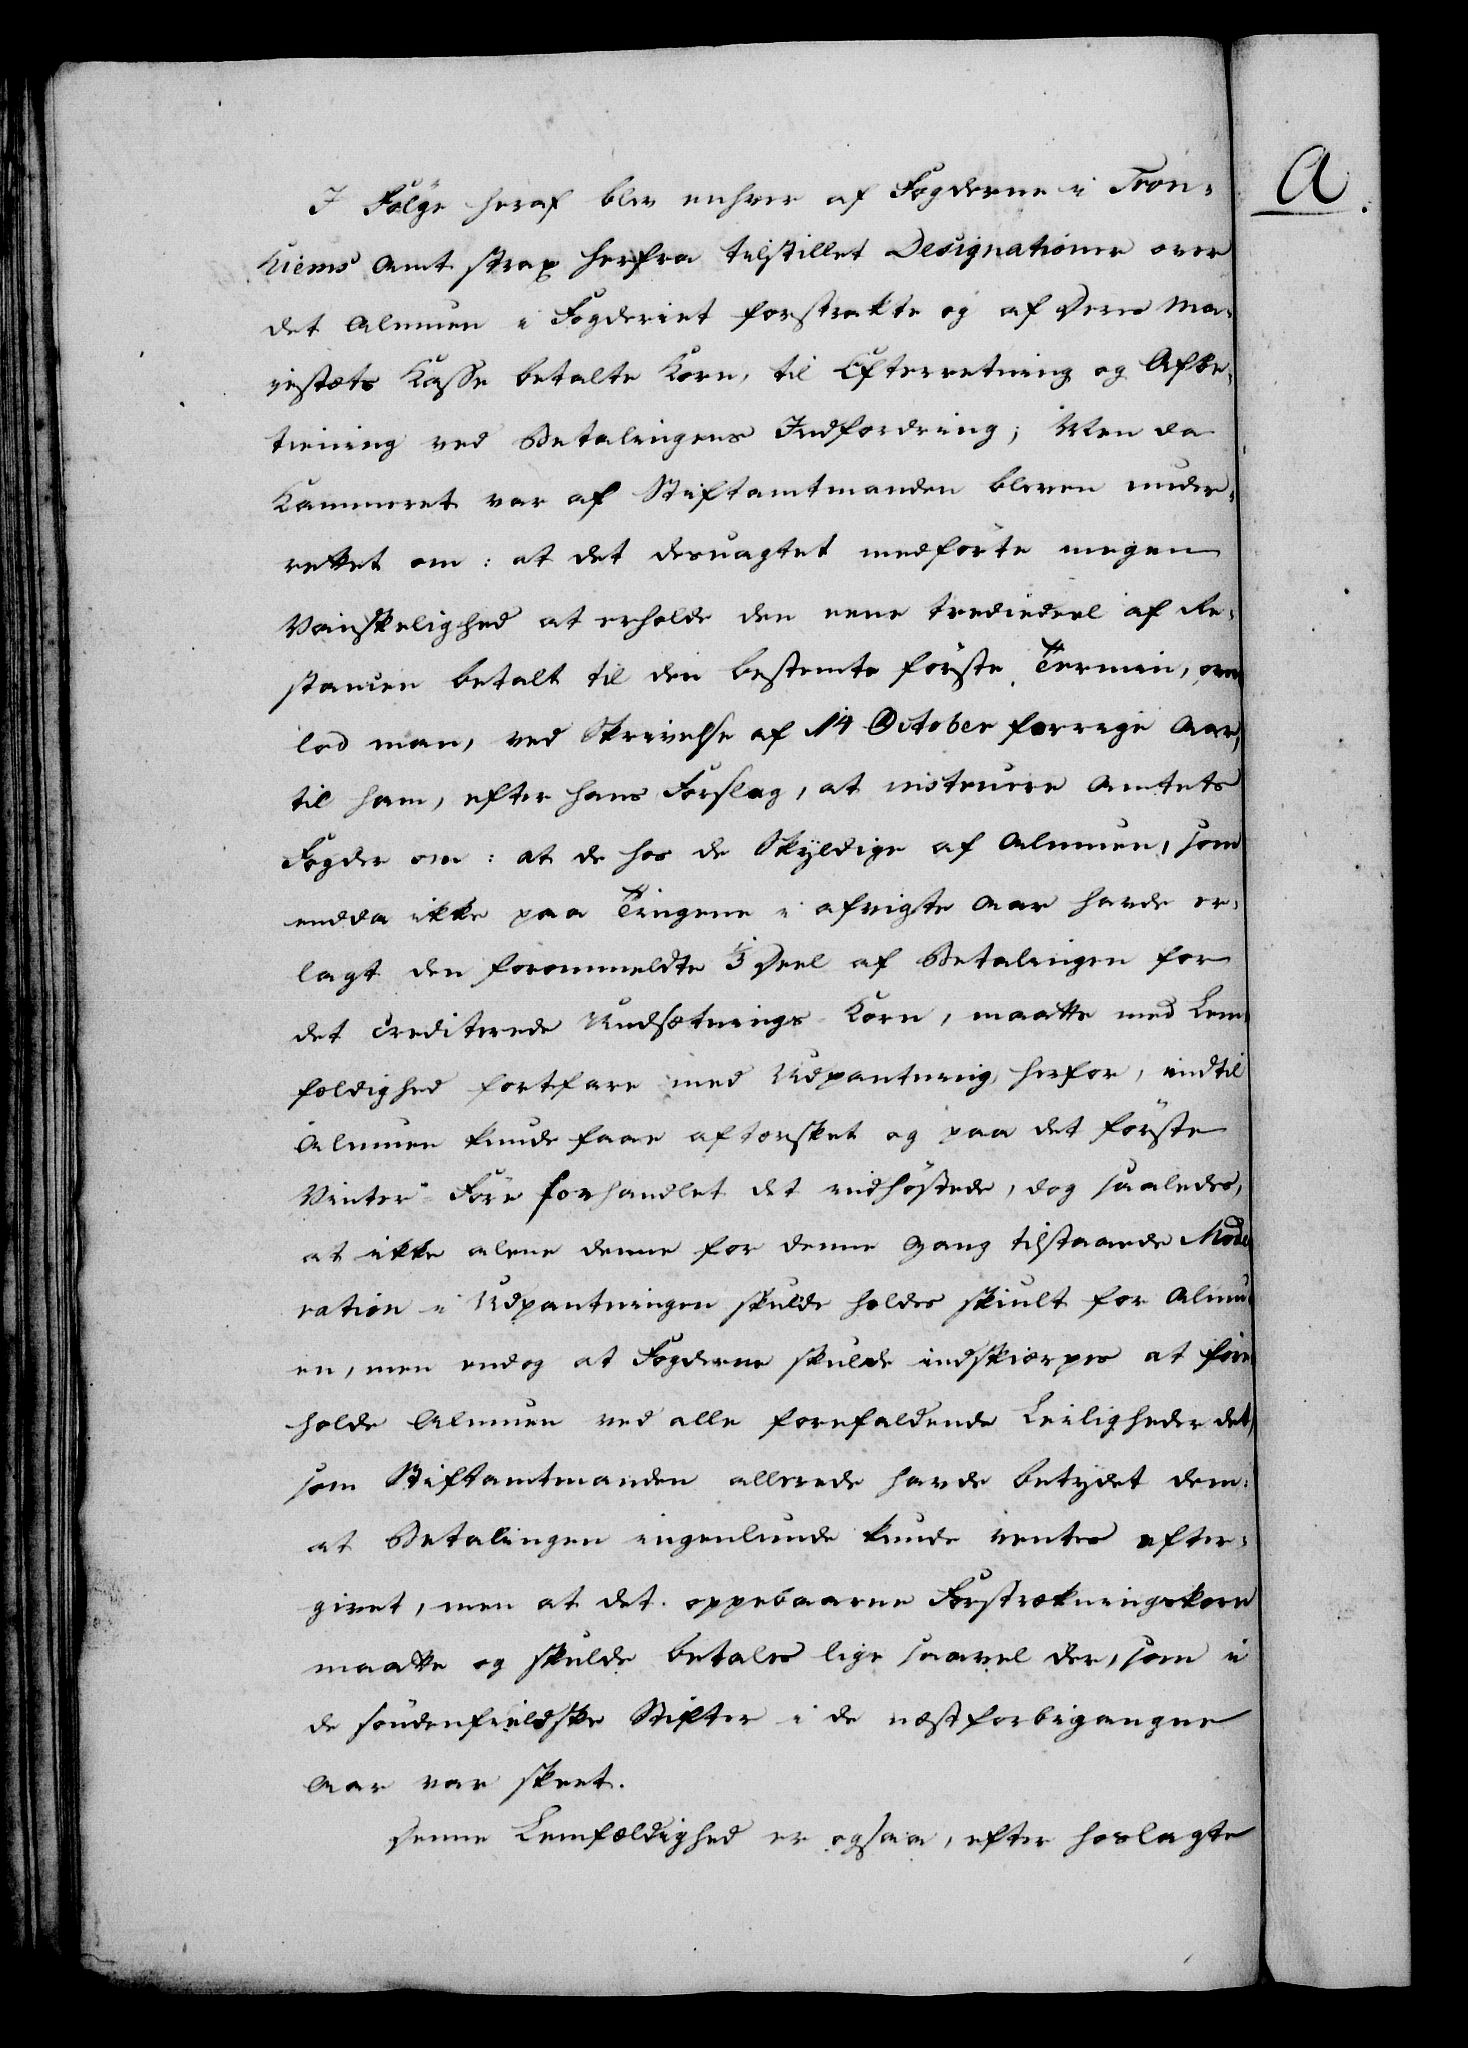 A.
I Fölge heraf blev enhver af Fogderne i Tron-
hiems Amt strax herfra tilstillet Designationer over
det Almuen i Fogderiet forstrakte og af Deres Ma-
jestæts Kasse betalte Korn, til Efterretning og Afbe-
tiening ved Betalingens Indfordring; Men da
Kammeret var af Stiftamtmanden bleven under-
rettet om: at det desuagtet medførte megen
Vanskelighed at erholde den eene trediedeel af Re-
stancen betalt til den bestemte første Termin, over
lod man, ved Skrivelse af 14 October forrige Aar,
til ham, efter hans Forslag, at instruere Amtets
Fogder om: at de hos de Skyldige af Almuen, som
endda ikke paa Tingene i afvigte Aar havde er-
lagt den forommeldte 1/3 Deel af Betalingen for
det crediterede Undsætnings Korn, maatte med Lem-
fældighed fortfare med Udpantning herfor, indtil
Almuen kunde faae aftorsket og paa det første
Vinter-Føre forhandlet det indhøstede, dog saaledes,
at ikke alene denne for denne Gang tilstaaede Mode-
ration i Udpantningen skulde holdes skiult for Almu-
en, men endog at Fogderne skulde indskiærpes at fore
holde Almuen ved alle forefaldende Leiligheder det,
som Stiftamtmanden allerede havde betydet dem:
at Betalingen ingenlunde kunde ventes efter-
givet, men at det oppebaarne Forstrækningskorn
maatte og skulde betales lige saavel der, som i
de søndenfieldske Stifter i de næstforbigangne
Aar var skeet.
Denne Lemfældighed er ogsaa, efter hoslagte